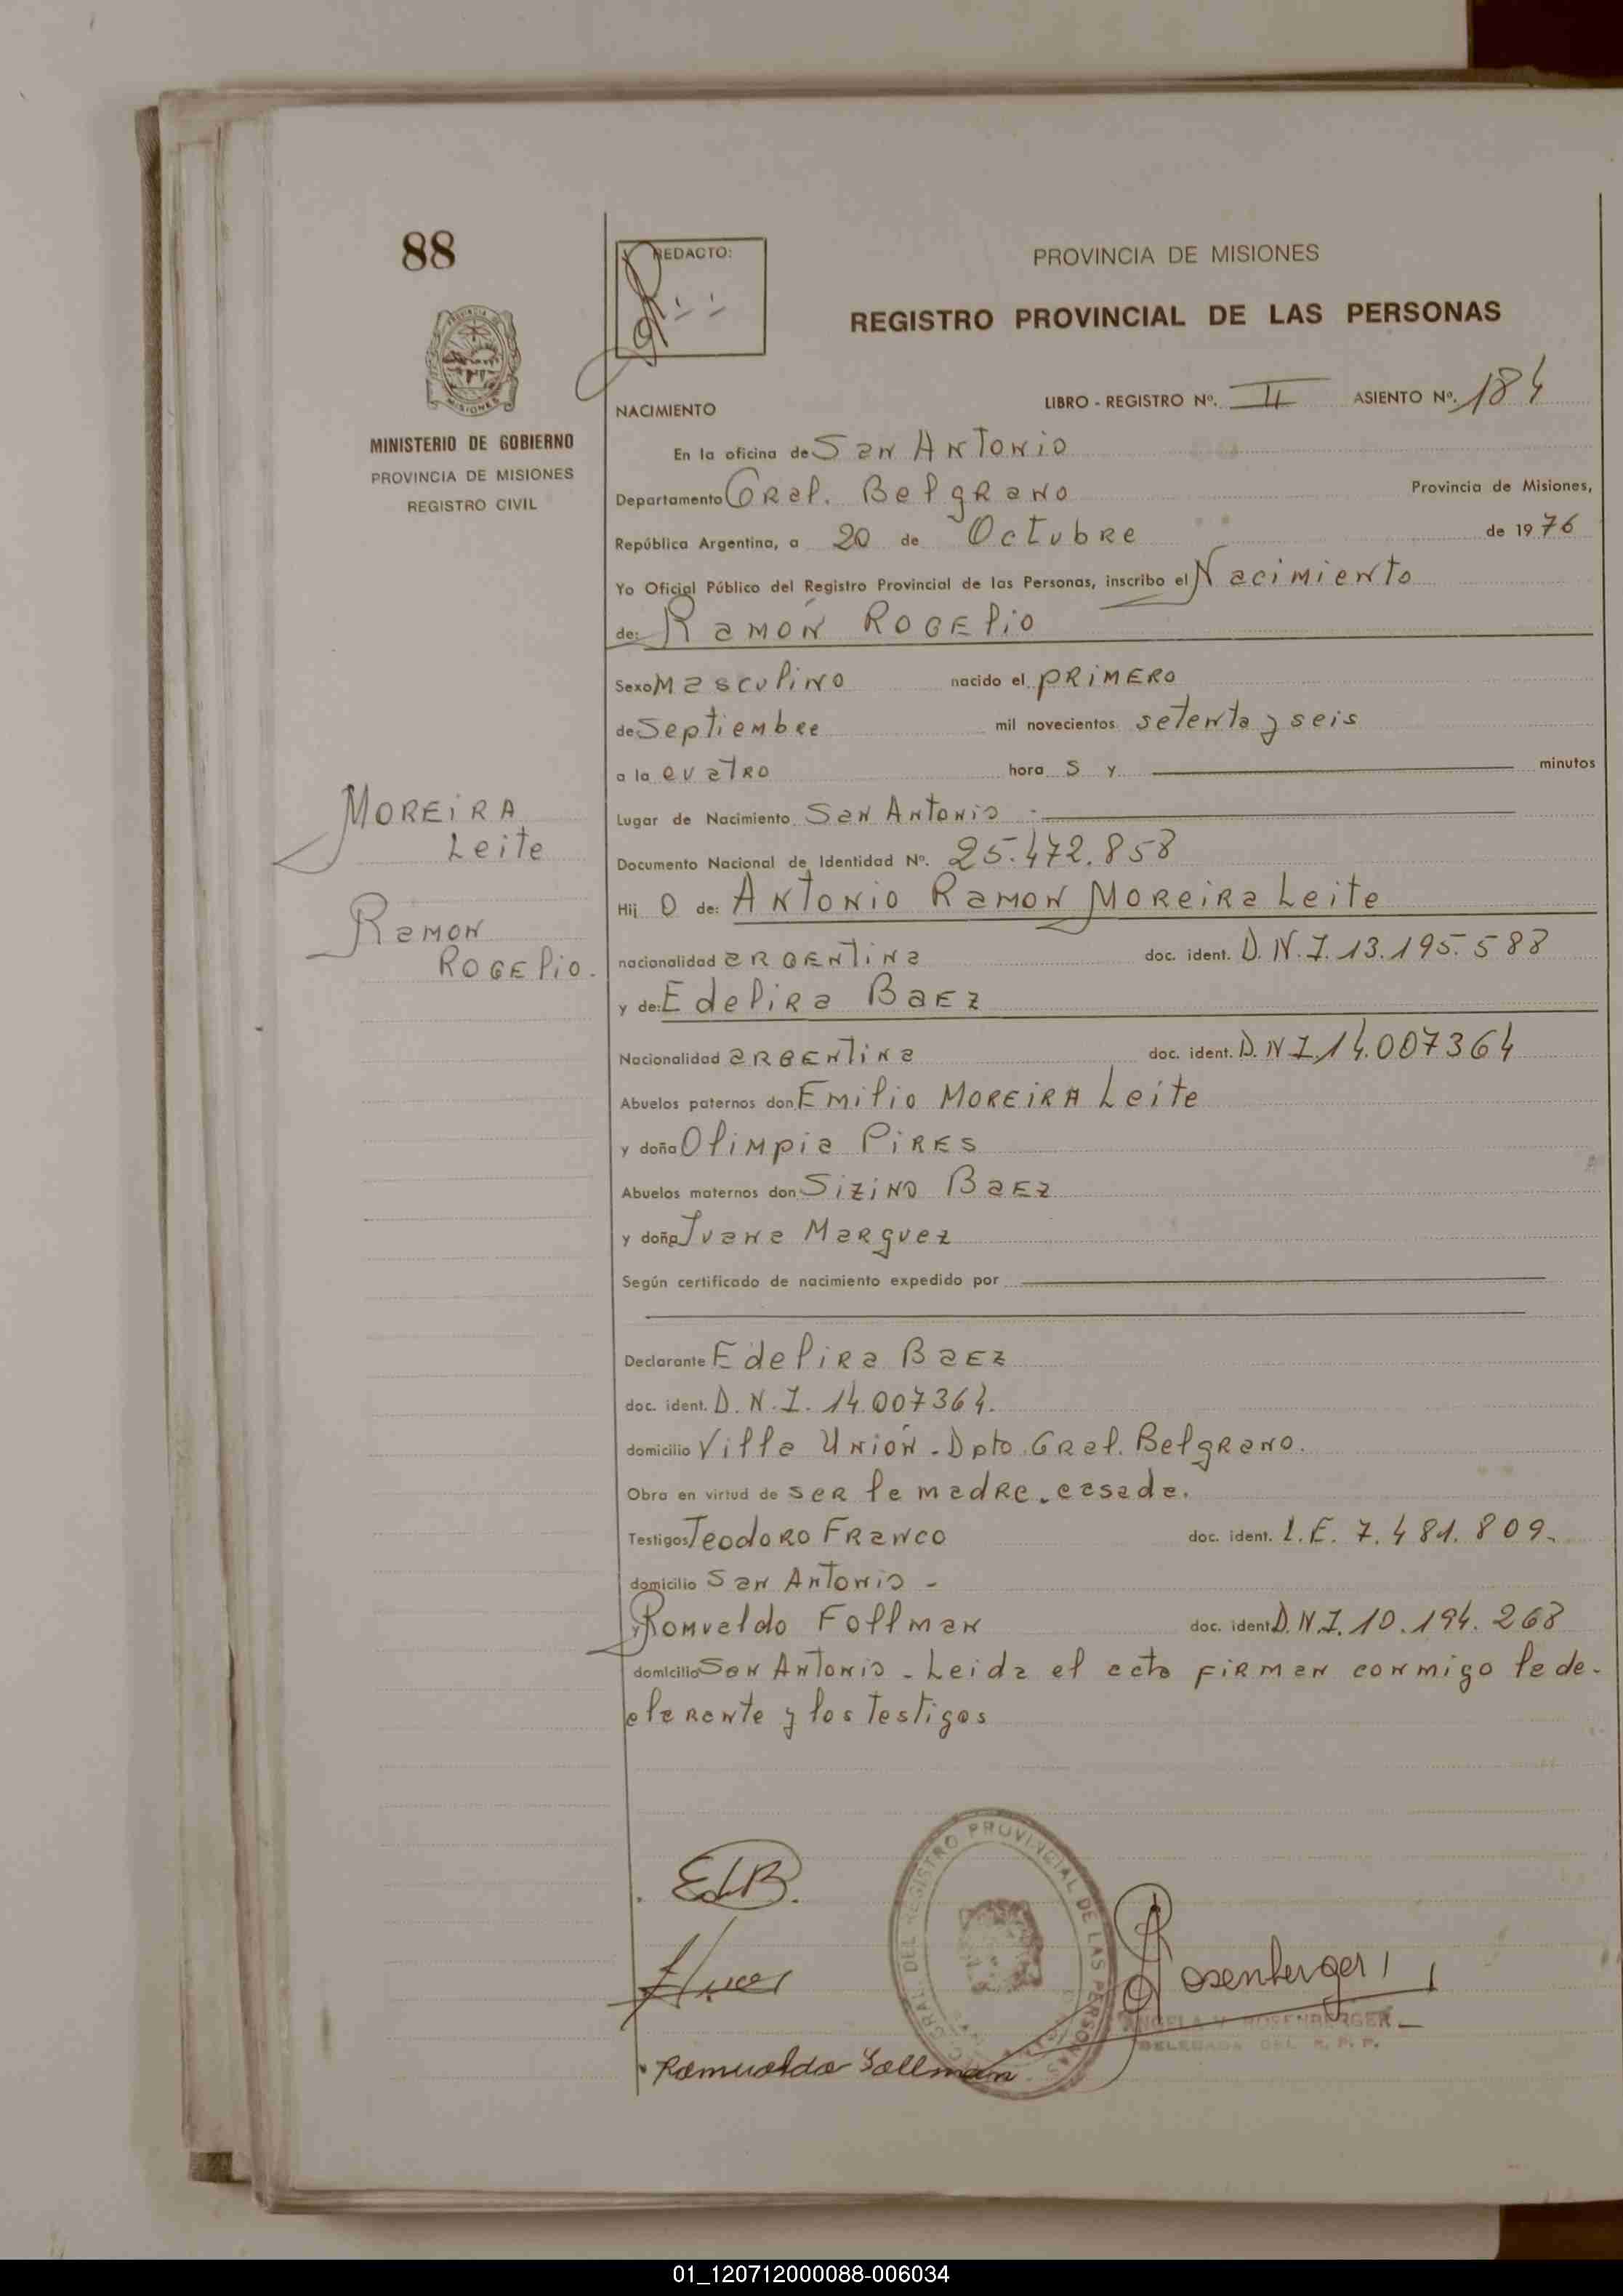 88
REDACTO:
PROVINCIA DE MISIONES
REGISTRO PROVINCIAL DE LAS PERSONAS
MISIONES
MINISTERIO DE GOBIERNO
PROVINCIA DE MISIONES
REGISTRO CIVIL
NACIMIENTO LIBRO - REGISTRO Nº. II ASIENTO Nº. 184
En la oficina de San Antonio
Departamento Gral. Belgrano Provincia de Misiones,
República Argentina, a 20 de Octubre de 1976
Yo Oficial Público del Registro Provincial de las Personas, inscribo el Nacimiento
de: Ramón Rogelio
Sexo Masculino nacido el primero
de Septiembre mil novecientos setenta y seis
a la cuatro hora s y minutos
Lugar de Nacimiento San Antonio
Documento Nacional de Identidad Nº. 25.472.858
Hij o de: Antonio Ramon Moreira Leite
nacionalidad argentina doc. ident. D.N.I. 13.195.588
y de: Edelira Baez
Nacionalidad argentina doc. ident. D.N.I. 14.007364
Abuelos paternos don Emilio Moreira Leite
y doña Olimpia Pires
Abuelos maternos don Sizino Baez
y doña Juana Marquez
Según certificado de nacimiento expedido por
Declarante Edelira Baez
doc. ident. D.N.I. 14.007364.
domicilio Villa Unión. Dpto. Gral. Belgrano.
Obra en virtud de ser la madre. casada.
Testigos Teodoro Franco doc. ident. L.E. 7.481.809.
domicilio San Antonio -
y Romualdo Follman doc. ident D.N.I. 10.194.268
domicilio San Antonio - Leida el acta firman conmigo la de-
clarante y los testigos
MOREIRA
Leite
Ramon
Rogelio.
ELB.
Rosenberger
ANGELA V. ROSENBERGER
DELEGADA DEL R. P. P.
GRAL. DEL REGISTRO PROVINCIAL DE LAS PERSONAS
Romualdo Follman
01_120712000088-006034